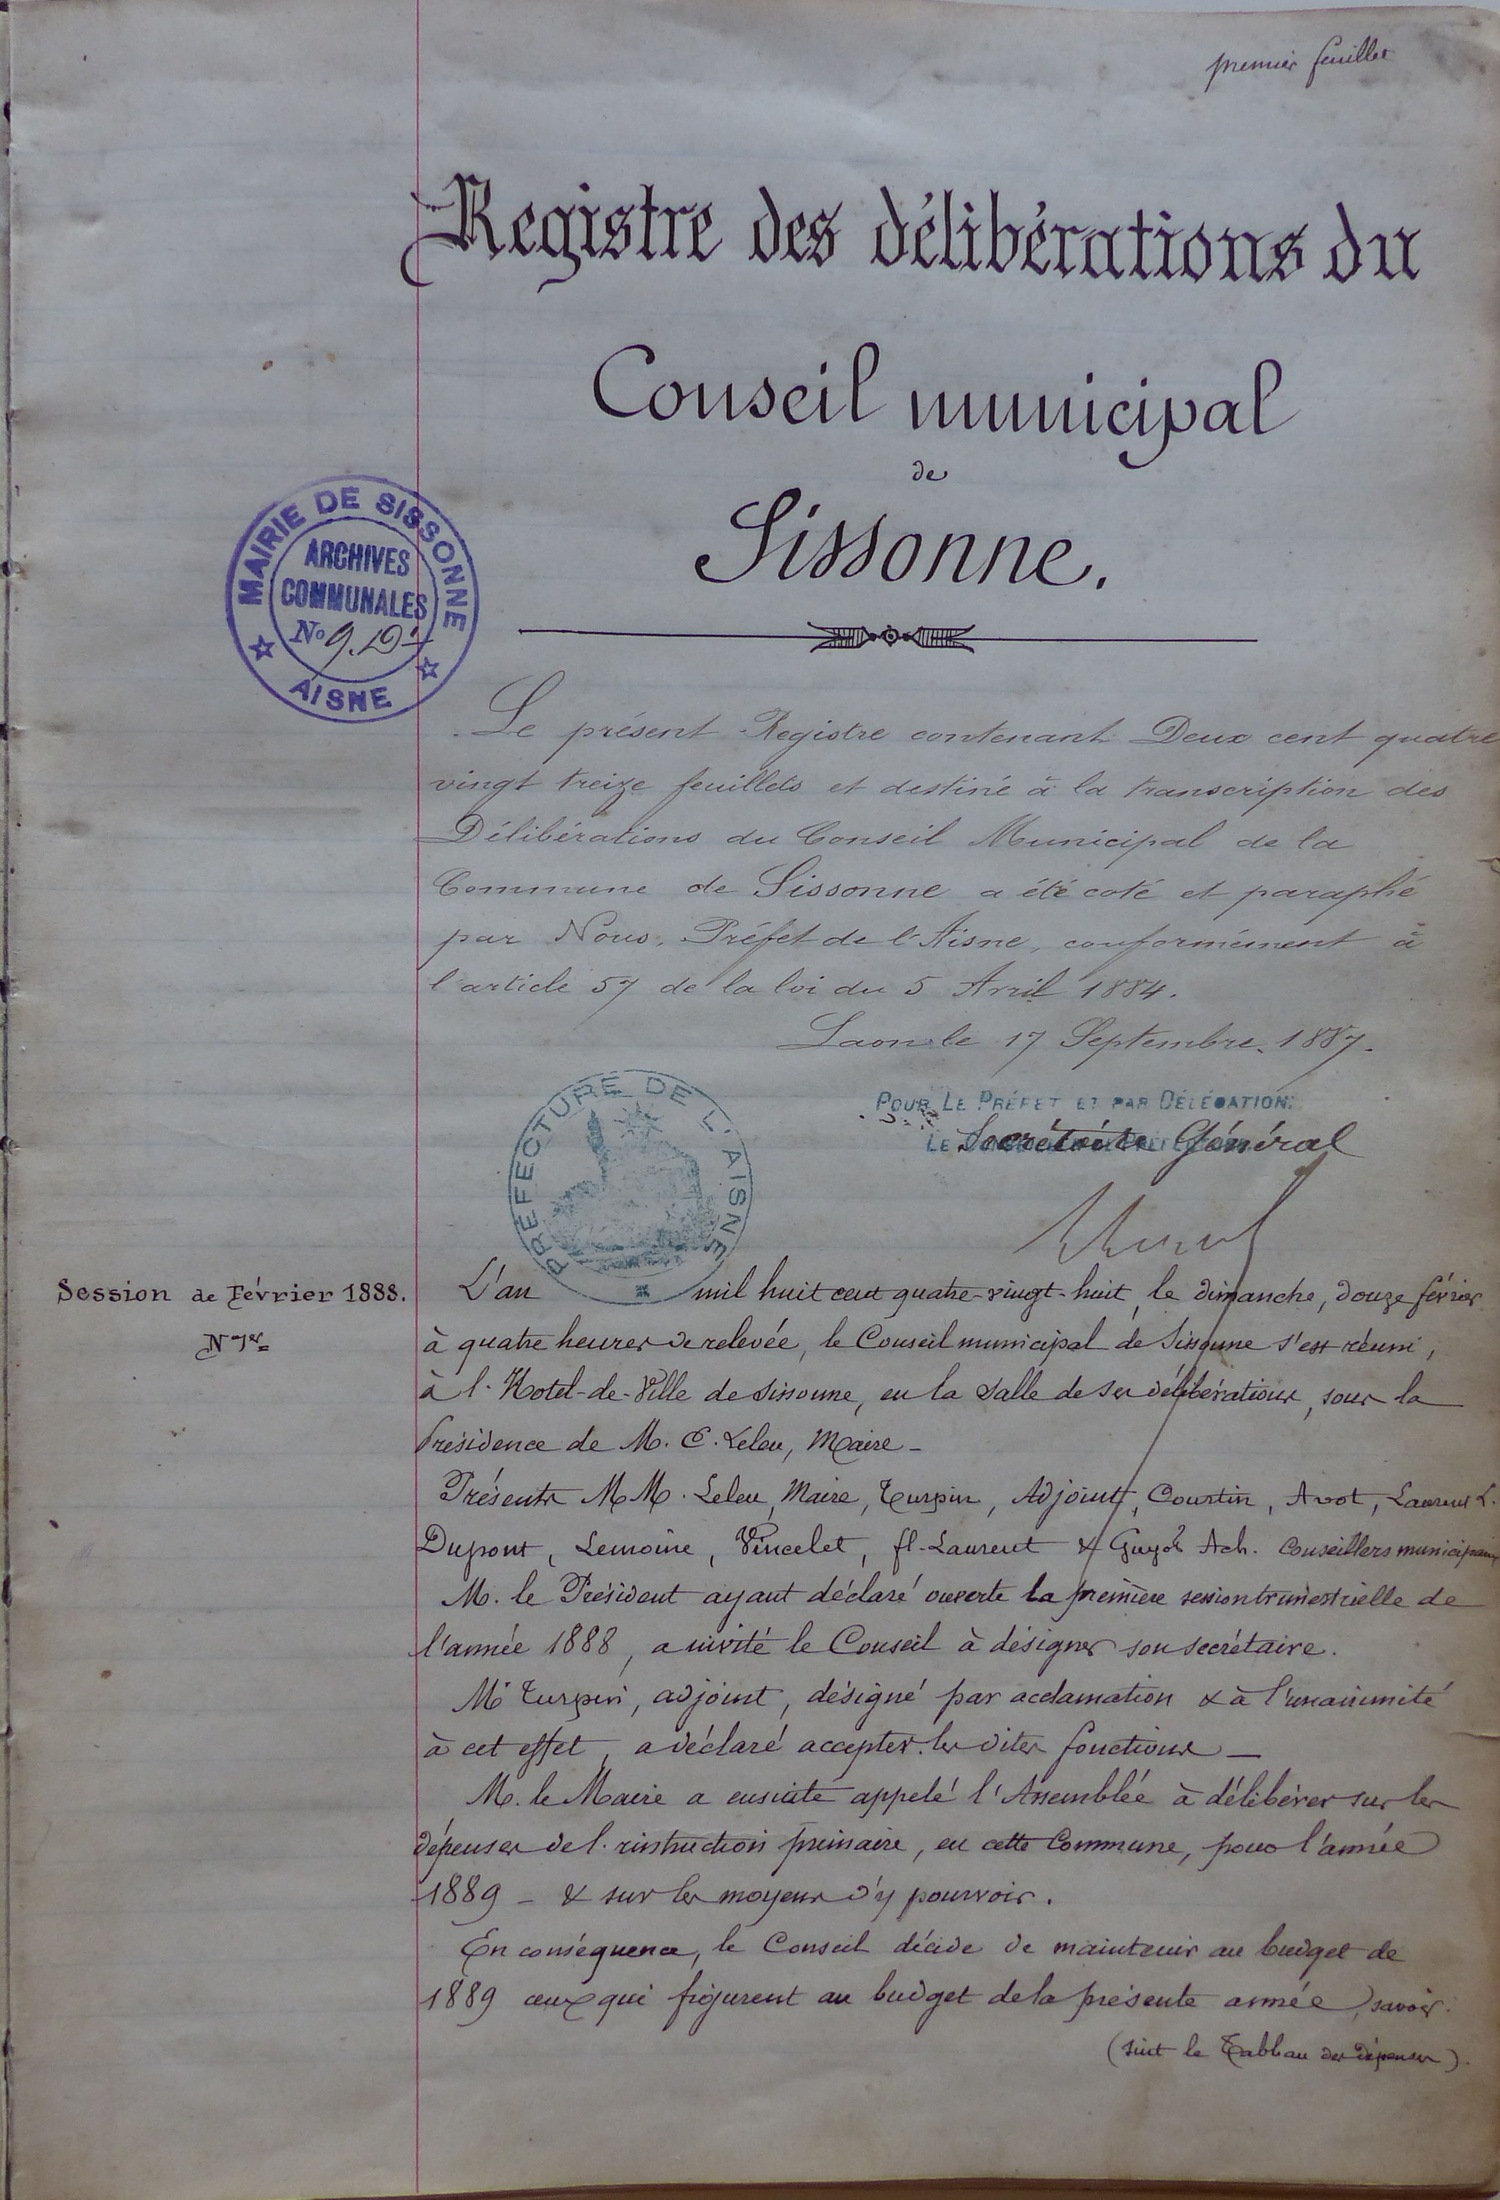 premier feuillet
Registre des délibérations du
Conseil municipal
de
Sissonne.
MAIRIE DE SISSONNE
ARCHIVES
COMMUNALES
No 9.D1
AISNE
Le présent Registre contenant Deux cent quatre
vingt treize feuillets et destiné à la transcription des
Délibérations du Conseil Municipal de la
Commune de Sissonne a été coté et paraphé
par Nous, Préfet de l'Aisne, conformément à
l'article 57 de la loi du 5 Avril 1884.
Laon le 17 Septembre 1887.
PREFECTURE DE L'AISNE
POUR LE PRÉFET ET PAR DÉLÉGATION:
LE Secrétaire Général
Session de Février 1888.
N° 1er
L'an mil huit cent quatre-vingt-huit, le dimanche, douze février
à quatre heures de relevée, le Conseil municipal de Sissonne s'est réuni,
à l'Hotel-de-Ville de Sissonne, en la salle de ses délibérations, sous la
Présidence de M. C. Leleu, Maire -
Présents MM. Leleu, Maire, Turpin, Adjoint, Courtin, Avot, Laurent L.
Dupont, Lemoine, Vincelet, fl. Laurent & Guyot Ach. Conseillers municipaux
M. le Président ayant déclaré ouverte la première session trimestrielle de
l'année 1888, a invité le Conseil à désigner son secrétaire.
Mr Turpin, adjoint, désigné par acclamation & à l'unanimité
à cet effet, a déclaré accepter les dites fonctions —
M. le Maire a ensuite appelé l'Assemblée à délibérer sur les
dépenses de l'instruction primaire, en cette Commune, pour l'année
1889 - & sur les moyens d'y pourvoir.
En conséquence, le Conseil décide de maintenir au budget de
1889 ceux qui figurent au budget de la présente année, savoir.
(suit le Tableau des dépenses).